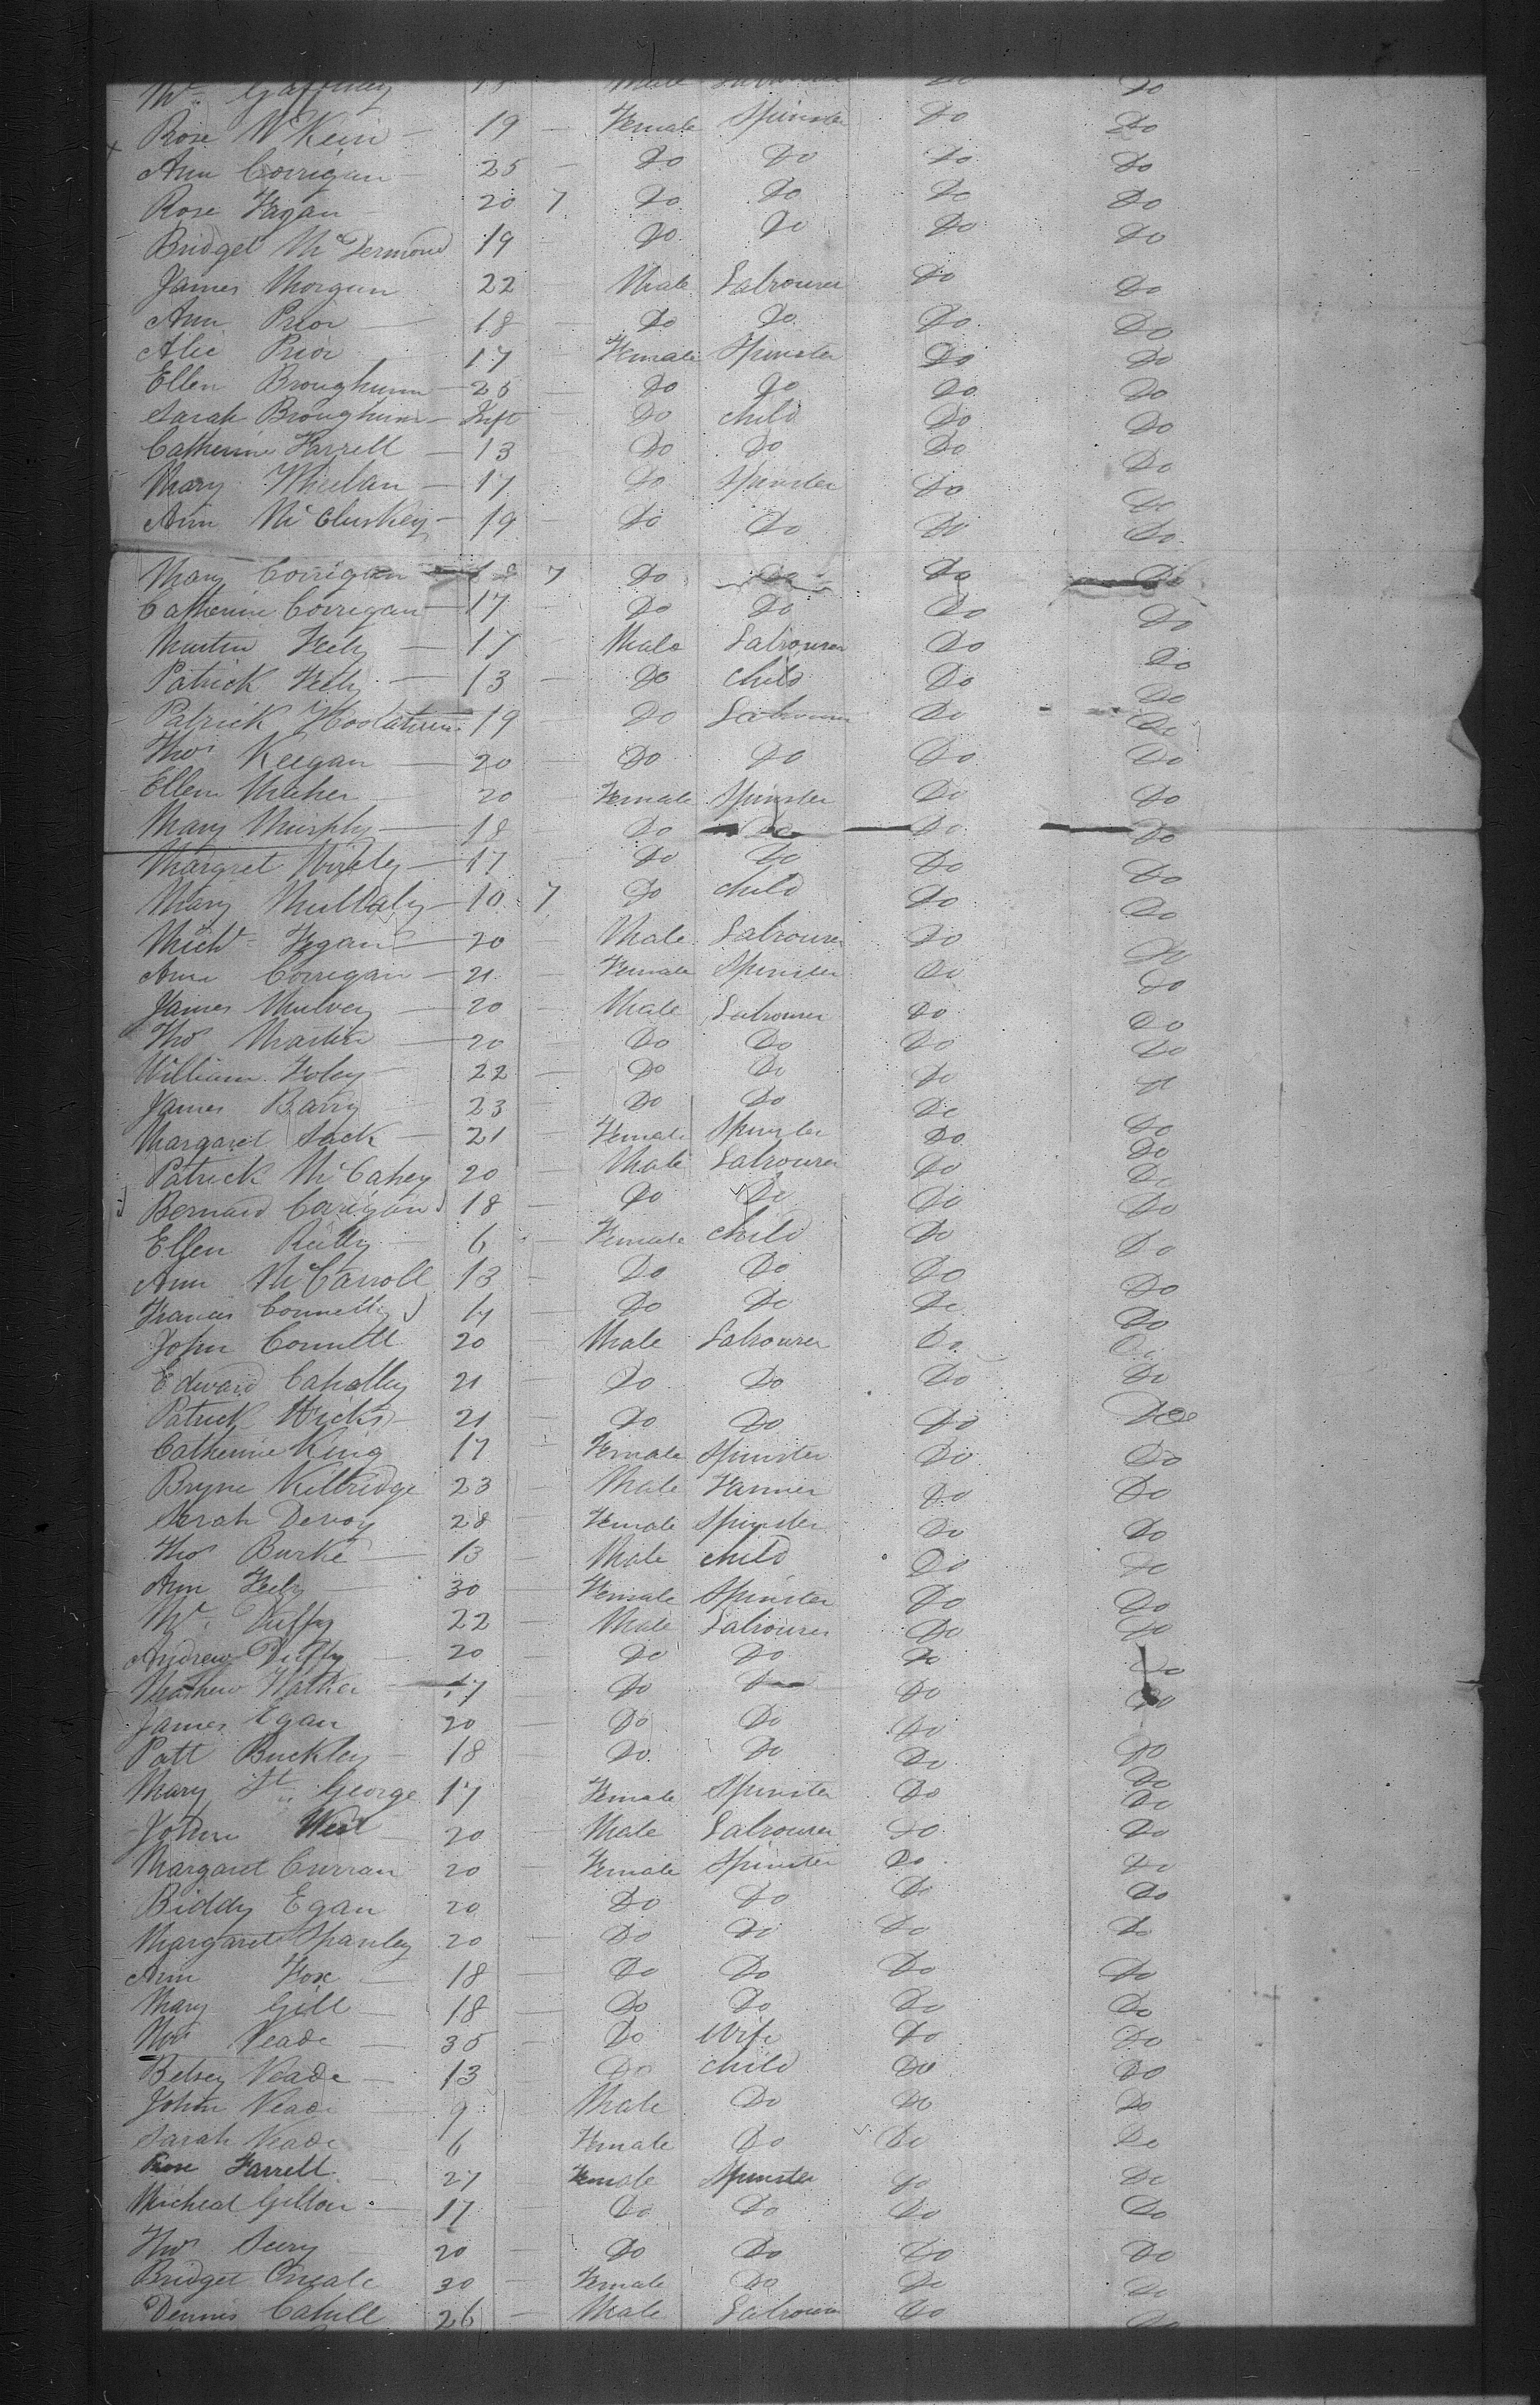 Wm Gaffney 18 Male Labourer Do Do
Rose McKein 19 Female Spinster Do Do
Ann Corrigan 25 Do Do Do Do
Rose Fagan 20 7 Do Do Do Do
Bridget McDermond 19 Do Do Do Do
James Morgan 22 Male Labourer Do Do
Ann Prior 18 Do Do Do Do
Alic Prior 17 Female Spinster Do Do
Ellen Broughunn 25 Do Do Do Do
Sarah Broughunn Inft Do child Do Do
Catherine Farrell 13 Do Do Do Do
Mary Whelan 17 Do Spinster Do Do
Ann McCluskey 19 Do Do Do Do
Mary Corrigan 18 7 Do Do Do Do
Catherine Corrigan 17 Do Do Do Do
Martin Feely 17 Male Labourer Do Do
Patrick Feely 13 Do child Do Do
Patrick 19 Do Labourer Do Do
Thos Keegan 20 Do Do Do Do
Ellen Maher 20 Female Spinster Do Do
Mary Murphy 18 Do Do Do Do
Margret 17 Do Do Do Do
Mary Mullaly 10 7 Do child Do Do
Michl Fegan 20 Male Labourer Do Do
Ann Corrigan 21 Female Spinster Do Do
James Mulvey 20 Male Labourer Do Do
Thos Martin 20 Do Do Do Do
William Foley 22 Do Do Do Do
James Barry 23 Do Do Do Do
Margaret Sack 21 Female Spinster Do Do
Patrick McCahey 20 Male Labourer Do Do
Bernard Corrigan 18 Do Do Do Do
Ellen Reilly 6 Female child Do Do
Ann McCarroll 13 Do Do Do Do
Francis Connelly 14 Do Do Do Do
John Connell 20 Male Labourer Do Do
Edward Cahalley 21 Do Do Do Do
Patrick Hicks 21 Do Do Do Do
Catherine King 17 Female Spinster Do Do
Bryne Kilbridge 23 Male Farmer Do Do
Sarah Devoy 28 Female Spinster Do Do
Thos Burke 13 Male child Do Do
Ann Feely 30 Female Spinster Do Do
Wm Duffy 22 Male Labourer Do Do
Andrew Duffy 20 Do Do Do Do
Mathew Walker 17 Do Do Do Do
James Egan 20 Do Do Do Do
Patt Buckley 18 Do Do Do Do
Mary St George 17 Female Spinster Do Do
John West 20 Male Labourer Do Do
Margaret Curran 20 Female Spinster Do Do
Biddy Egan 20 Do Do Do Do
Margaret Spanley 20 Do Do Do Do
Ann Fox 18 Do Do Do Do
Mary Gill 18 Do Do Do Do
Mrs Neade 35 Do Wife Do Do
Betsey Neade 13 Do child Do Do
John Neade 9 Male Do Do Do
Sarah Neade 6 Female Do Do Do
Rose Farrell 27 Female Spinster Do Do
Micheal Gilton 17 Do Do Do Do
Thos Seery 20 Do Do Do Do
Bridget Oneale 30 Female Do Do Do
Dennis Cahill 26 Male Labourer Do Do